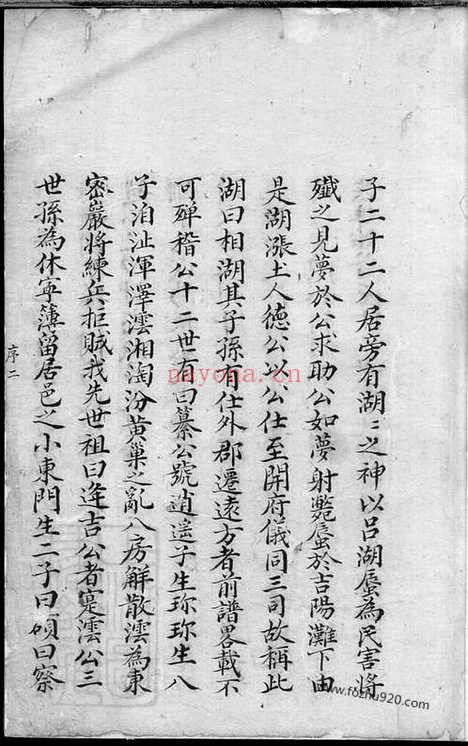 子二十二人居旁有湖〻之神以呂湖蜃為民害將
殲之見夢於公求助公如夢射斃蜃於吉陽灘下由
是湖漲土人德公以公仕至開府儀同三司故稱此
湖曰相湖其子孫有仕外郡遷遠方者前譜畧載不
可殫稽公十二世有曰纂公號逍遥子生珎珎生八
子泊沚渾澤澐湘淘汾黄巢之亂八房解散澐為東
密巖將練兵拒賊我先世祖曰逢吉公者寔澐公三
世孫為休寧簿留居邑之小東門生二子曰碩曰察
序二
nayona.cn
www.fozhu920.com